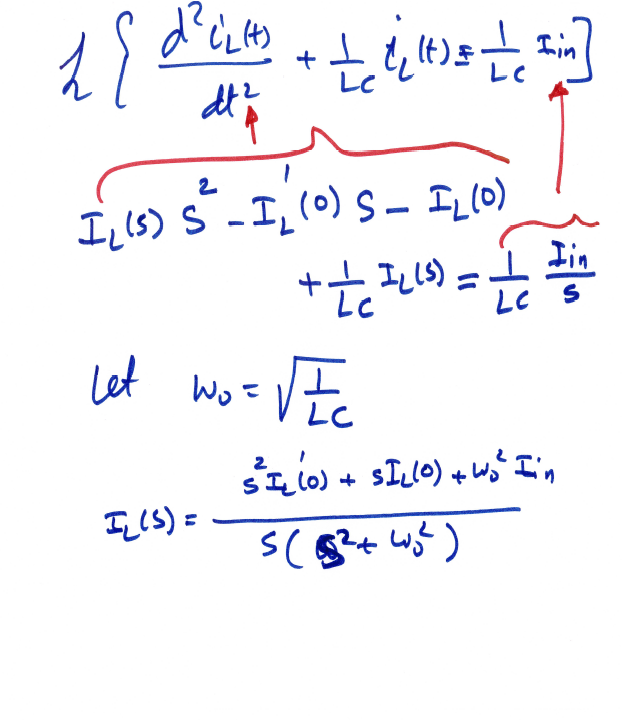 ℒ { d²i_L(t)/dt² + 1/LC i_L(t) = 1/LC I_in ]
I_L(s) S² - I_L'(0) S - I_L(0)
+ 1/LC I_L(s) = 1/LC I_in/s
Let ω₀ = √(1/LC)
I_L(s) = (s² I_L'(0) + s I_L(0) + ω₀² I_in) / (s (s² + ω₀²))